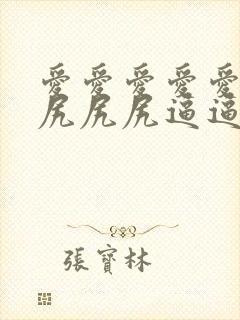 愛愛愛愛愛
尻尻尻逼逼
張寶林